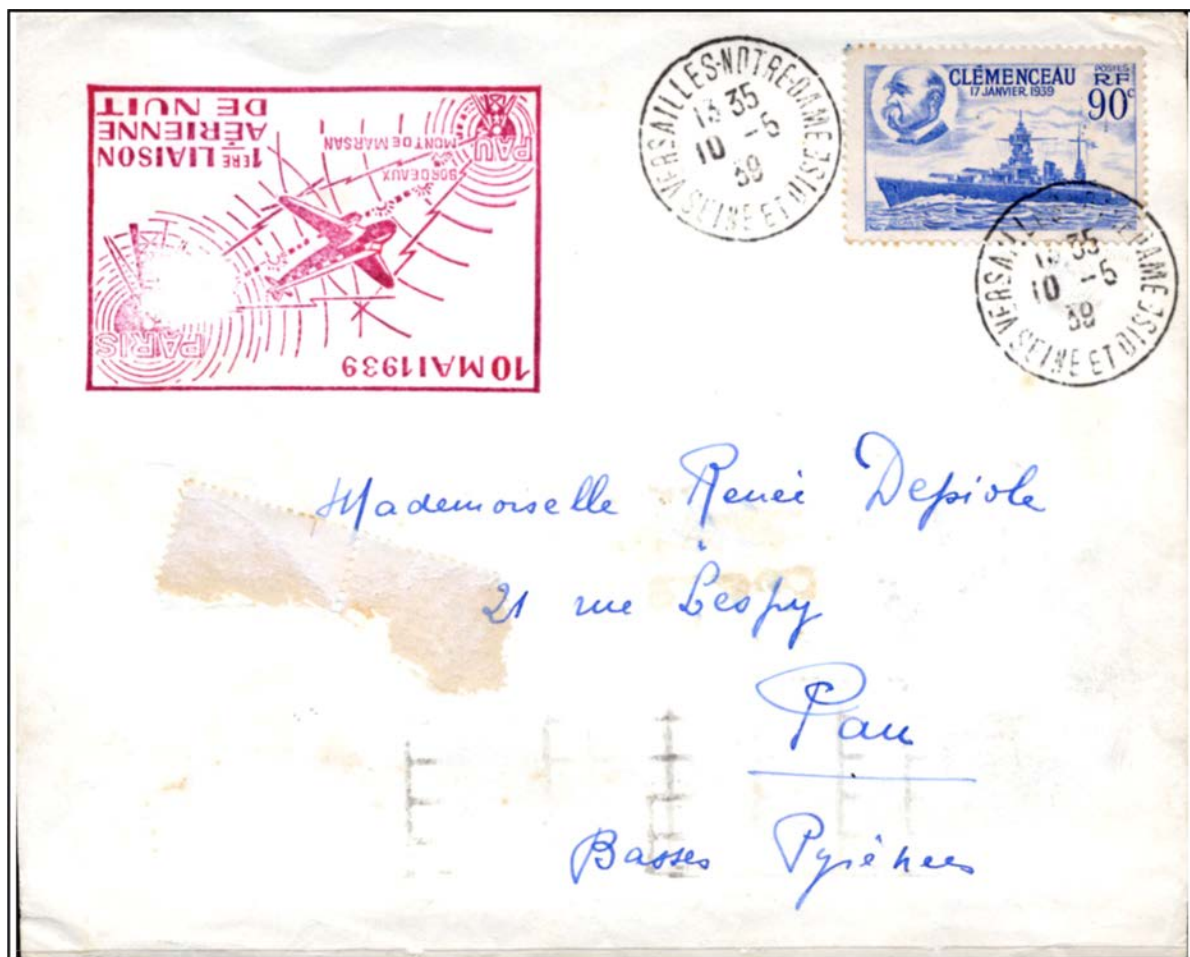 1ÈRE LIAISON
AÉRIENNE
DE NUIT
PAU
MONT DE MARSAN
BORDEAUX
PARIS
10 MAI 1939
VERSAILLES-NOTRE-DAME
13 35
10 -5
39
SEINE ET OISE
CLÉMENCEAU
17 JANVIER 1939
POSTES
RF
90c
VERSAILLES DAME
13 35
10 -5
39
SEINE ET OISE
Mademoiselle Renée
21 rue Lespy
Pau
Basses Pyrénées